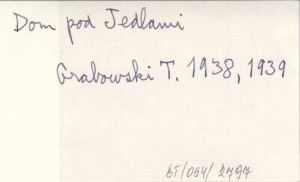 Dom pod Jedlami
Grabowski T. 1938, 1939
BT/064/2797